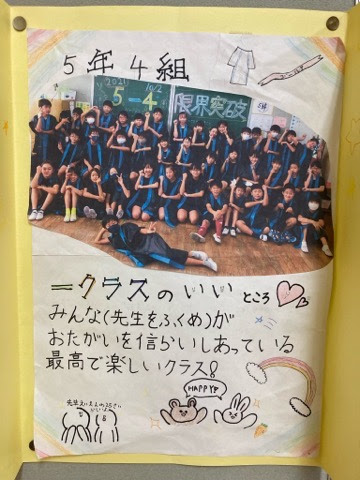 5年4組
2021 10/2
5-4
限界突破
=クラスのいいところ
みんな(先生をふくめ)が
おたがいを信らいしあっている
最高で楽しいクラス!
HAPPY♡